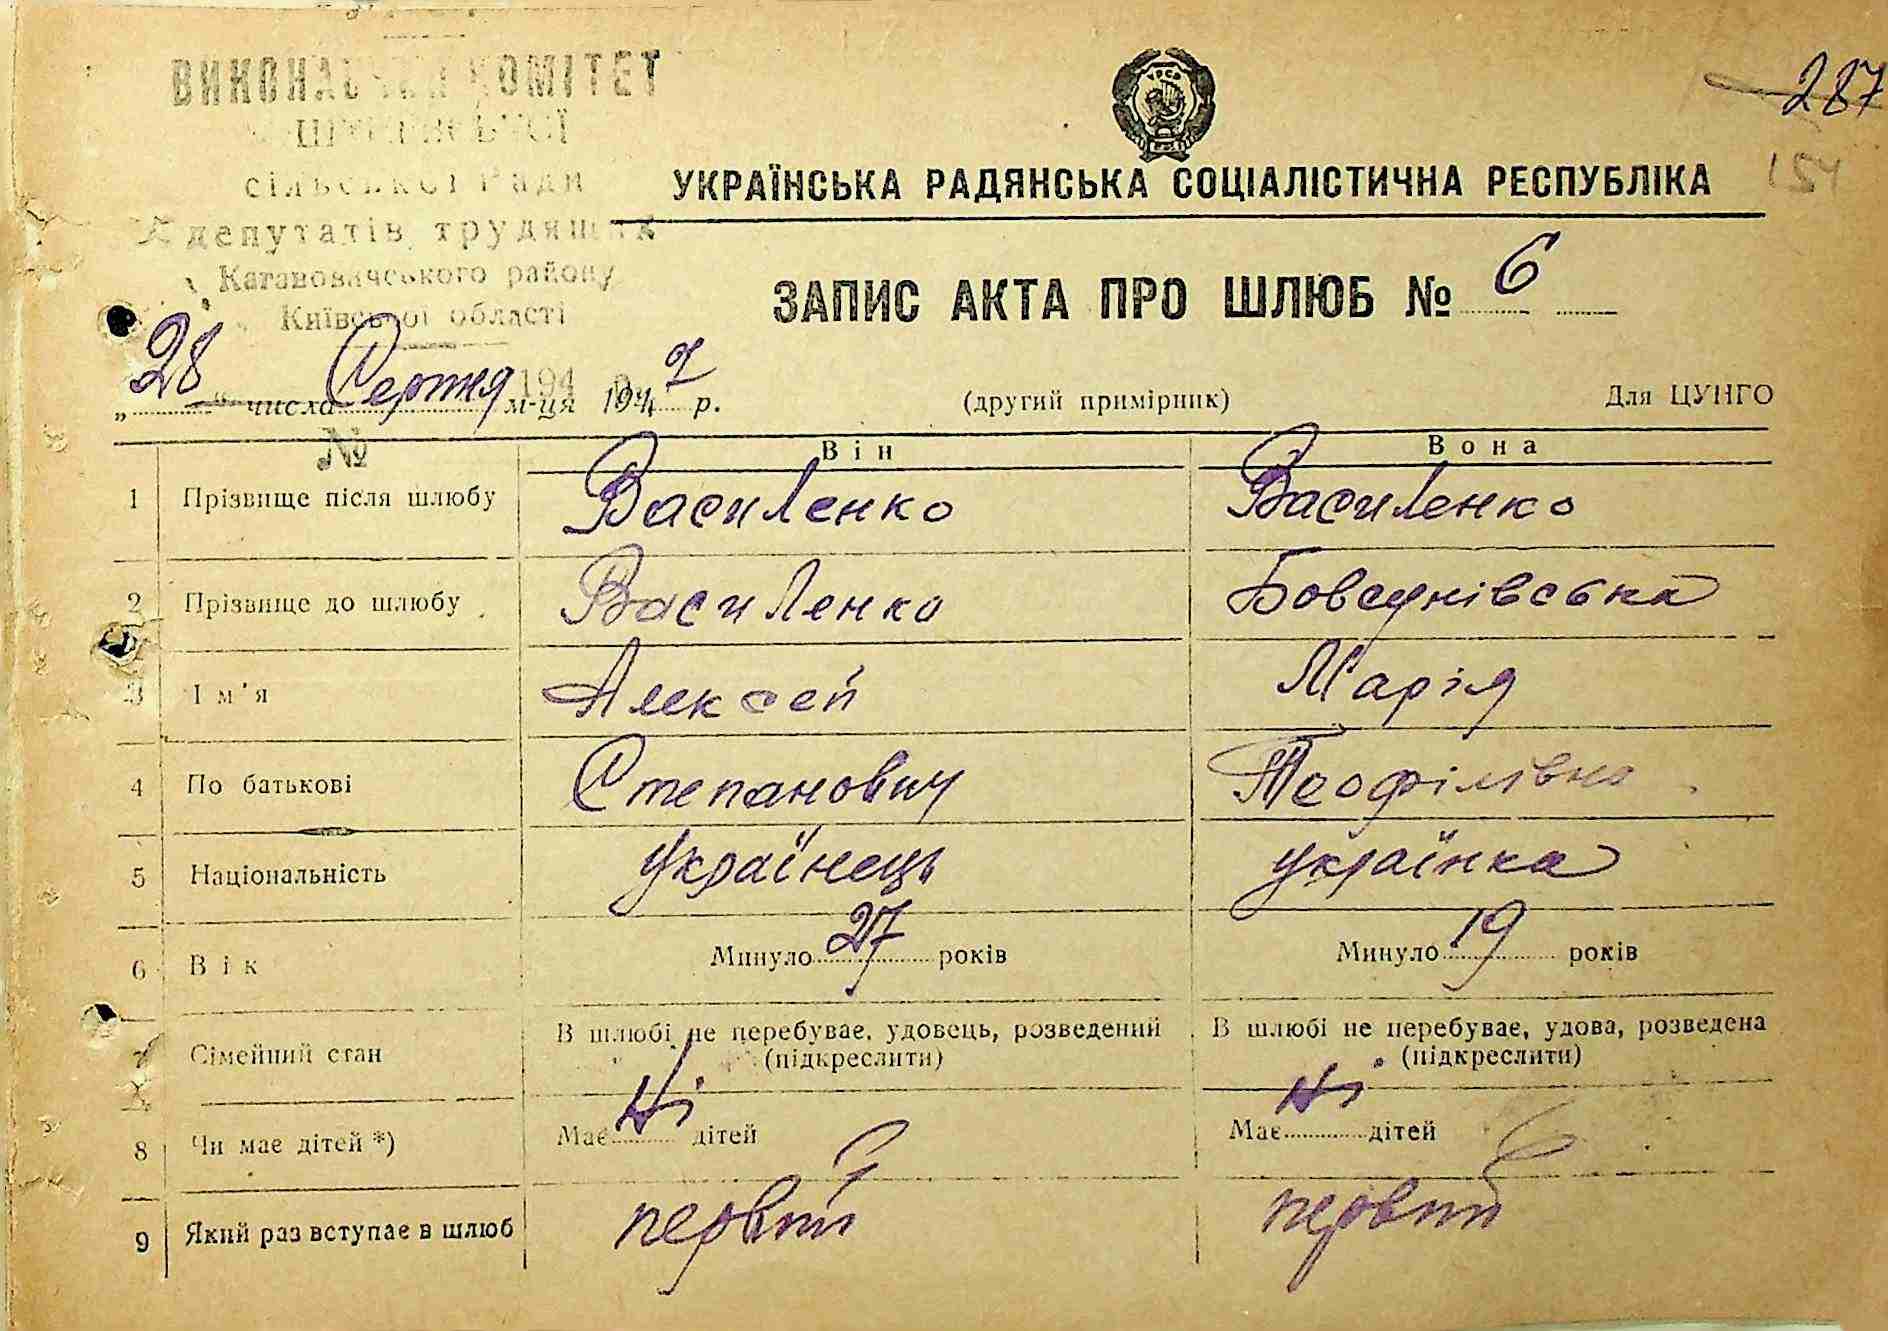 287
154
ВИКОНАВЧИЙ КОМІТЕТ
сільської Ради
депутатів трудящих
Кагановичського району
Київської області
УКРАЇНСЬКА РАДЯНСЬКА СОЦІАЛІСТИЧНА РЕСПУБЛІКА
ЗАПИС АКТА ПРО ШЛЮБ № 6
„28“ числа Серпня м-ця 1947 р. (другий примірник) Для ЦУНГО
№
Він Вона
1 Прізвище після шлюбу Василенко Василенко
2 Прізвище до шлюбу Василенко Бовсунівська
3 Ім'я Алексей Марія
4 По батькові Степанович Теофілівна
5 Національність українець українка
6 Вік Минуло 27 років Минуло 19 років
7 Сімейний стан В шлюбі не перебуває, удовець, розведений В шлюбі не перебуває, удова, розведена
(підкреслити) (підкреслити)
8 Чи має дітей *) Має ні дітей Має ні дітей
9 Який раз вступає в шлюб первий первий